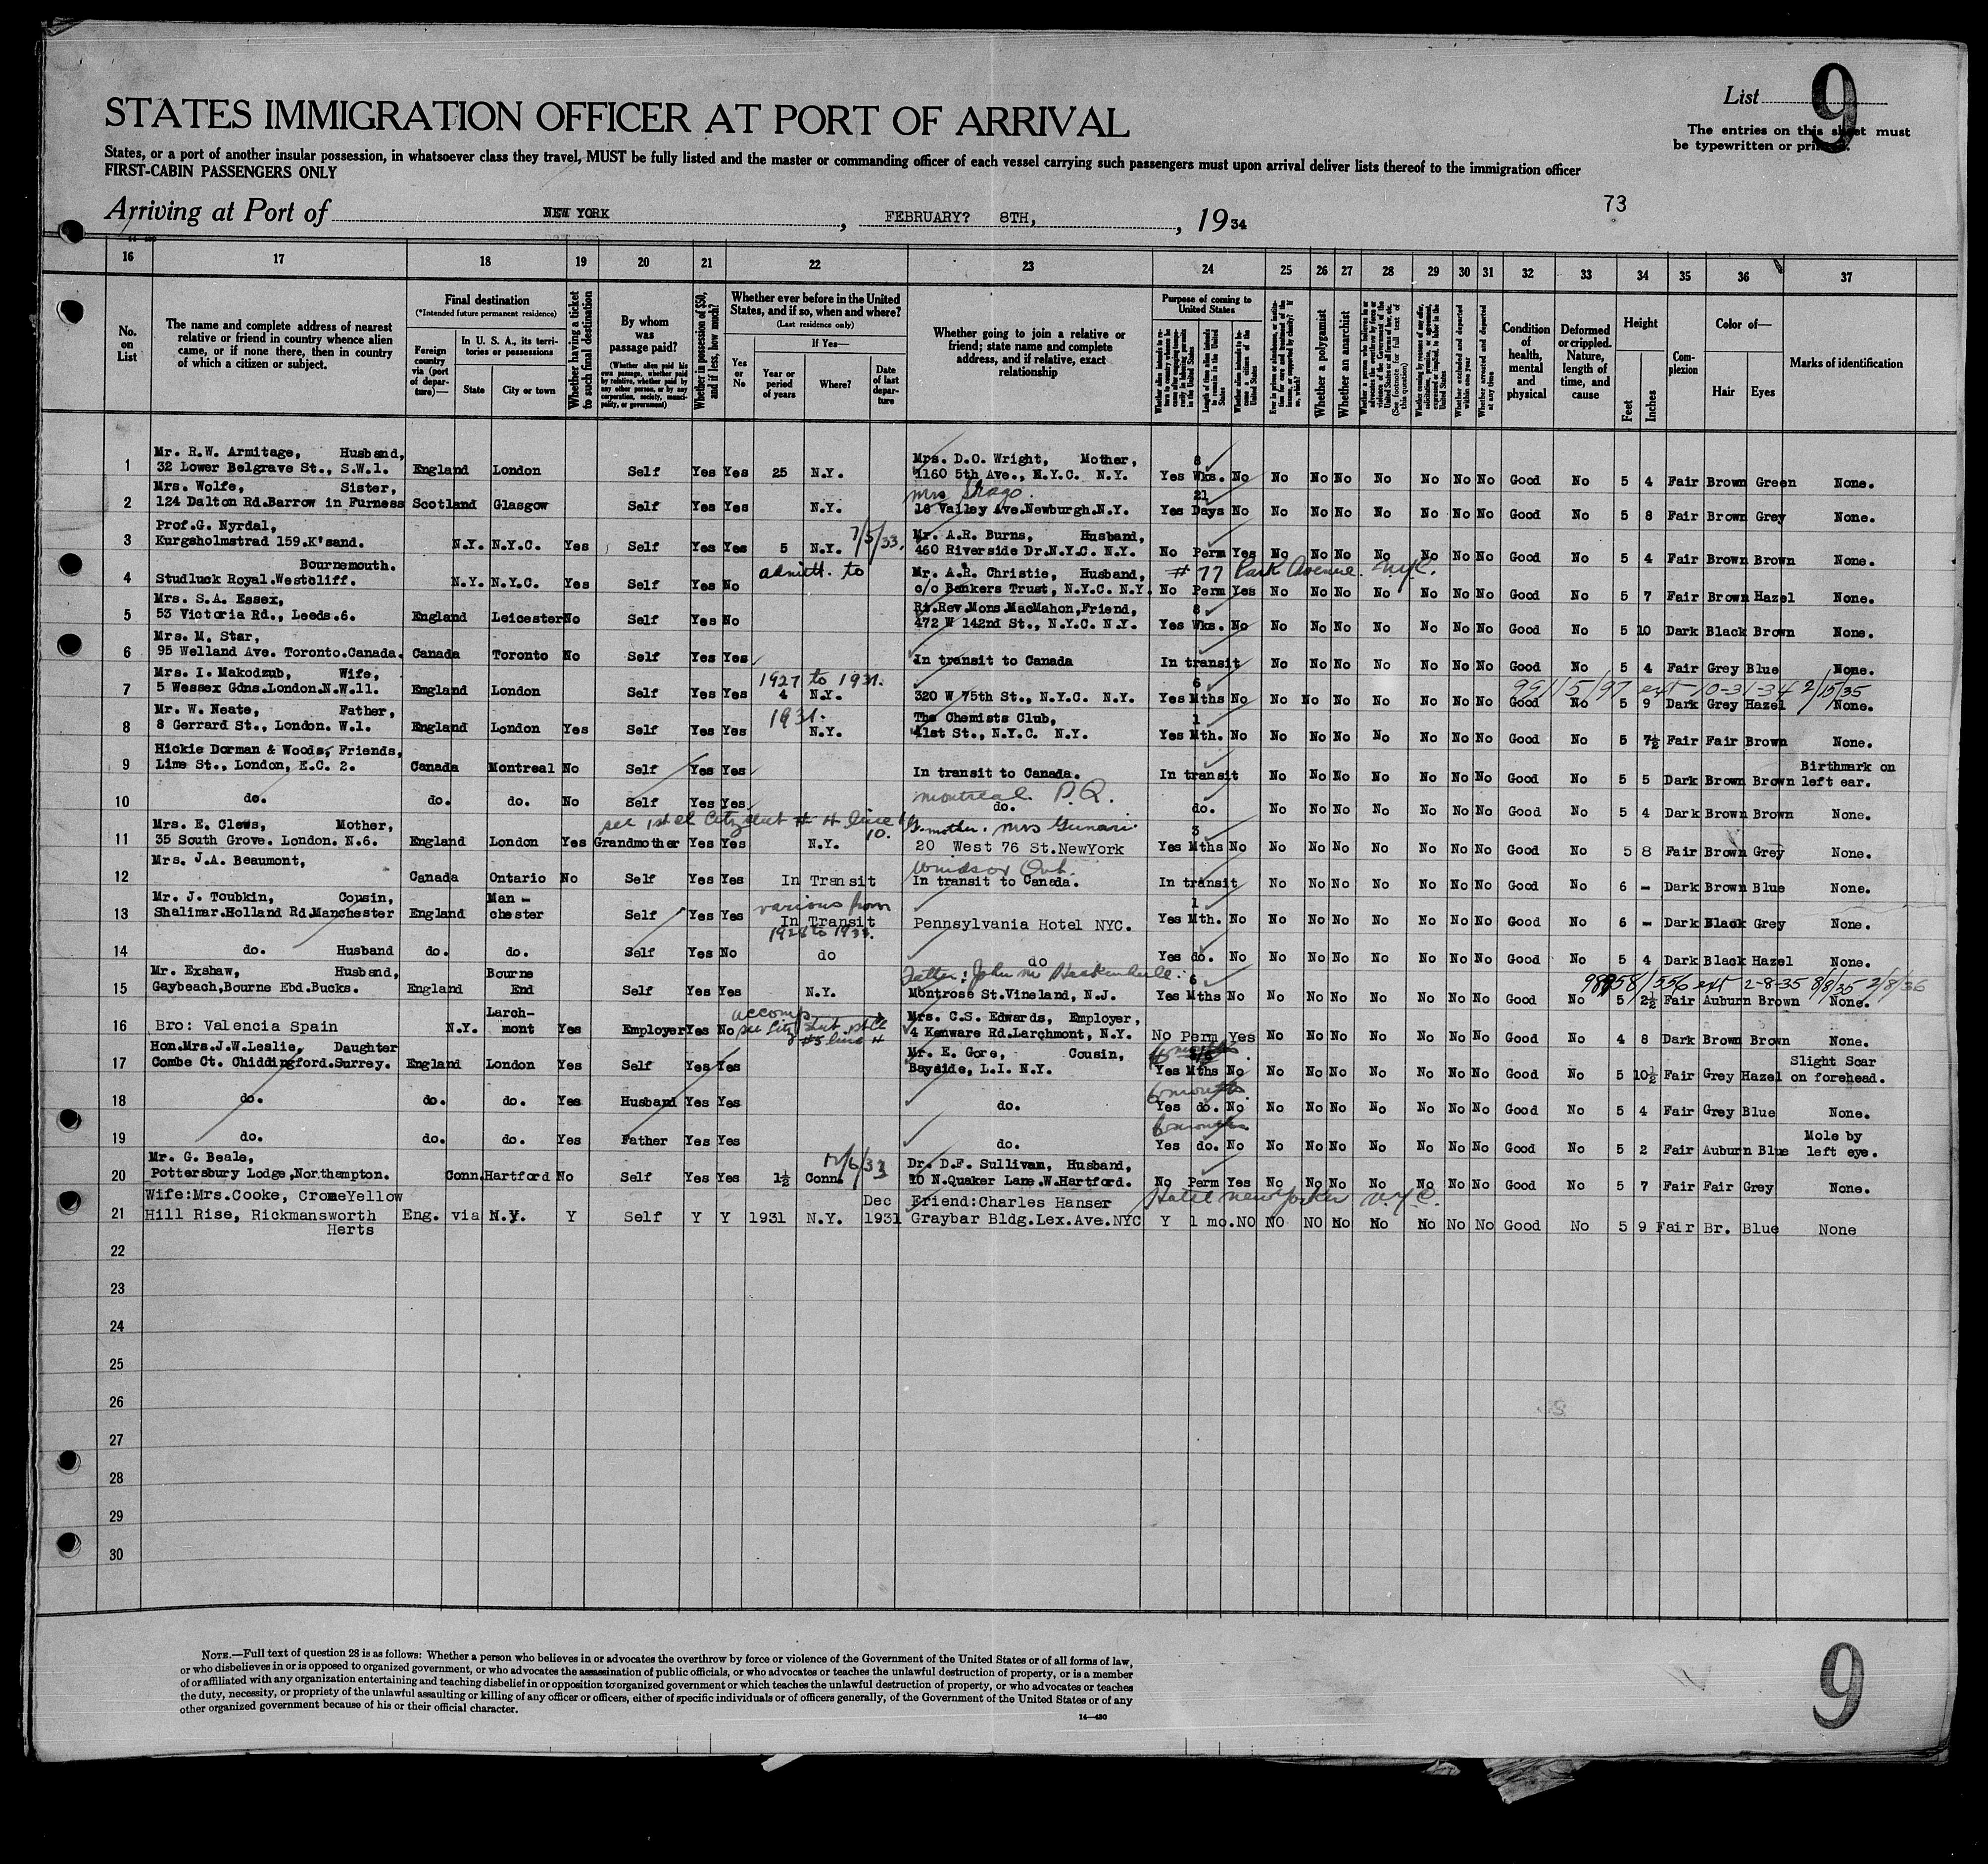 List 9
STATES IMMIGRATION OFFICER AT PORT OF ARRIVAL
The entries on this sheet must
be typewritten or printed.
States, or a port of another insular possession, in whatsoever class they travel, MUST be fully listed and the master or commanding officer of each vessel carrying such passengers must upon arrival deliver lists thereof to the immigration officer
FIRST-CABIN PASSENGERS ONLY
73
Arriving at Port of NEW YORK, FEBRUARY? 8TH, 1934
16 17 18 19 20 21 22 23 24 25 26 27 28 29 30 31 32 33 34 35 36 37
No. on List
The name and complete address of nearest relative or friend in country whence alien came, or if none there, then in country of which a citizen or subject.
Final destination
(*Intended future permanent residence)
Foreign country via (port of departure)—
In U. S. A., its territories or possessions
State
City or town
Whether having a ticket to such final destination
By whom was passage paid?
(Whether alien paid his own passage, whether paid by relative, whether paid by any other person, or by any corporation, society, municipality, or government)
Whether in possession of $50, and if less, how much?
Whether ever before in the United States, and if so, when and where?
(Last residence only)
Yes or No
If Yes—
Year or period of years
Where?
Date of last departure
Whether going to join a relative or friend; state name and complete address, and if relative, exact relationship
Purpose of coming to United States
Length of time alien intends to remain in the United States
Whether a polygamist
Whether an anarchist
(See footnote for full text of this question)
Whether excluded and deported within one year
Whether arrested and deported at any time
Condition of health, mental and physical
Deformed or crippled. Nature, length of time, and cause
Height
Feet
Inches
Complexion
Color of—
Hair
Eyes
Marks of identification
1 Mr. R.W. Armitage, Husband,
32 Lower Belgrave St., S.W.1. England London Self Yes Yes 25 N.Y. Mrs. D.O. Wright, Mother,
1160 5th Ave., N.Y.C. N.Y. Yes 8 Wks. No No No No No No No No Good No 5 4 Fair Brown Green None.
2 Mrs. Wolfe, Sister,
124 Dalton Rd.Barrow in Furness Scotland Glasgow Self Yes Yes N.Y. Mrs Shago
16 Valley Ave.Newburgh.N.Y. Yes 21 Days No No No No No No No No Good No 5 8 Fair Brown Grey None.
3 Prof.G. Nyrdal,
Kurgsholmstrad 159.K'sand. N.Y. N.Y.C. Yes Self Yes Yes 5 N.Y. 7/5/33. Mr. A.R. Burns, Husband,
460 Riverside Dr.N.Y.C. N.Y. No Perm Yes No No No No No No No Good No 5 4 Fair Brown Brown None.
4 Bournemouth.
Studluck Royal.Westcliff. N.Y. N.Y.C. Yes Self Yes No admitt. to Mr. A.R. Christie, Husband, # 77 Park Avenue. N.Y.C.
c/o Bankers Trust, N.Y.C. N.Y. No Perm Yes No No No No No No No Good No 5 7 Fair Brown Hazel None.
5 Mrs. S.A. Essex,
53 Victoria Rd., Leeds.6. England Leicester No Self Yes No Rt.Rev.Mons.MacMahon,Friend,
472 W 142nd St., N.Y.C. N.Y. Yes 8 Wks. No No No No No No No No Good No 5 10 Dark Black Brown None.
6 Mrs. M. Star,
95 Welland Ave. Toronto.Canada. Canada Toronto No Self Yes Yes In transit to Canada In transit No No No No No No No Good No 5 4 Fair Grey Blue None.
7 Mrs. I. Makodzub, Wife,
5 Wessex Gdns.London.N.W.11. England London Self Yes Yes 1927 to 1931. 4 N.Y. 320 W 75th St., N.Y.C. N.Y. Yes 6 Mths No No No No No No No No Good No 5 9 Dark Grey Hazel None.
99115/97 ext 10-31-34 2/15/35
8 Mr. W. Neate, Father,
8 Gerrard St., London. W.1. England London Yes Self Yes Yes 1931. N.Y. The Chemists Club,
41st St., N.Y.C. N.Y. Yes 1 Mth. No No No No No No No No Good No 5 7½ Fair Fair Brown None.
9 Hickie Dorman & Woods, Friends,
Lime St., London, E.C. 2. Canada Montreal No Self Yes Yes In transit to Canada. In transit No No No No No No No Good No 5 5 Dark Brown Brown Birthmark on left ear.
10 do. do. do. No Self Yes Yes Montreal P.Q.
do. do. No No No No No No No Good No 5 4 Dark Brown Brown None.
see 1st cl Citz sheet # 4 line 10.
11 Mrs. E. Clews, Mother,
35 South Grove. London. N.6. England London Yes Grandmother Yes Yes N.Y. G.mother. Mrs Gunari
20 West 76 St.NewYork Yes 3 Mths No No No No No No No No Good No 5 8 Fair Brown Grey None.
12 Mrs. J.A. Beaumont,
Canada Ontario No Self Yes Yes In Transit Windsor Ont.
In transit to Canada. In transit No No No No No No No Good No 6 - Dark Brown Blue None.
13 Mr. J. Toubkin, Cousin,
Shalimar.Holland Rd.Manchester England Man-chester Self Yes Yes various from In Transit 1928 to 1933. Pennsylvania Hotel NYC. Yes 1 Mth. No No No No No No No No Good No 6 - Dark Black Grey None.
14 do. Husband do. do. Self Yes No do do Yes do. No No No No No No No No Good No 5 4 Dark Black Hazel None.
15 Mr. Exshaw, Husband,
Gaybeach,Bourne Ebd.Bucks. England Bourne End Self Yes Yes N.Y. Father: John M
Montrose St.Vineland, N.J. Yes 6 Mths No No No No No No No No Good No 5 2½ Fair Auburn Brown None.
58/556 ext 2-8-35 8/8/35 2/8/36
16 Bro: Valencia Spain N.Y. Larch-mont Yes Employer Yes No accomp. see Citz sheet 1st cl #5 line 4 Mrs. C.S. Edwards, Employer,
4 Kenware Rd.Larchmont, N.Y. No Perm Yes No No No No No No No Good No 4 8 Dark Brown Brown None.
17 Hon.Mrs.J.W.Leslie, Daughter
Combe Ct. Chiddingford.Surrey. England London Yes Self Yes Yes Mr. E. Gore, Cousin,
Bayside, L.I. N.Y. 6 months Yes Mths No No No No No No No No Good No 5 10½ Fair Grey Hazel Slight Scar on forehead.
18 do. do. do. Yes Husband Yes Yes do. 6 months Yes do. No No No No No No No No Good No 5 4 Fair Grey Blue None.
19 do. do. do. Yes Father Yes Yes do. 6 months Yes do. No No No No No No No No Good No 5 2 Fair Auburn Blue Mole by left eye.
20 Mr. G. Beale,
Pottersbury Lodge,Northampton. Conn. Hartford No Self Yes Yes 1½ Conn. 12/6/33 Dr. D.F. Sullivan, Husband,
10 N.Quaker Lane.W.Hartford. No Perm Yes No No No No No No No Good No 5 7 Fair Fair Grey None.
21 Wife:Mrs.Cooke, CromeYellow
Hill Rise, Rickmansworth
Herts Eng. via N.Y. Y Self Y Y 1931 N.Y. Dec 1931 Friend:Charles Hanser Hotel New Yorker N.Y.C.
Graybar Bldg.Lex.Ave.NYC Y 1 mo. NO NO NO No No No No No Good No 5 9 Fair Br. Blue None
22
23
24
25
26
27
28
29
30
NOTE.—Full text of question 28 is as follows: Whether a person who believes in or advocates the overthrow by force or violence of the Government of the United States or of all forms of law,
or who disbelieves in or is opposed to organized government, or who advocates the assassination of public officials, or who advocates or teaches the unlawful destruction of property, or is a member
of or affiliated with any organization entertaining and teaching disbelief in or opposition to organized government or which teaches the unlawful destruction of property, or who advocates or teaches
the duty, necessity, or propriety of the unlawful assaulting or killing of any officer or officers, either of specific individuals or of officers generally, of the Government of the United States or of any
other organized government because of his or their official character.
14—430
9